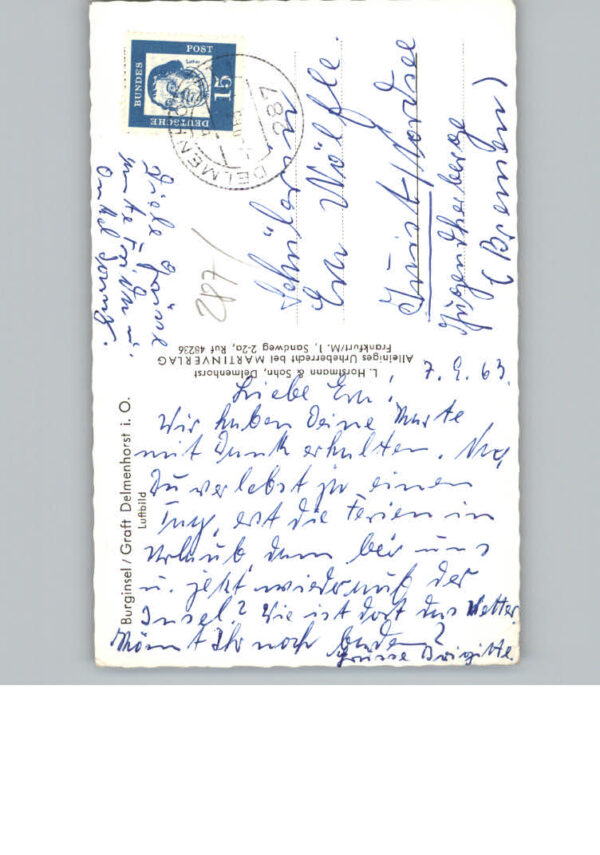 Burginsel / Graft Delmenhorst i. O.
Luftbild
7. 9. 63.
Liebe Eva!
Wir haben Deine Karte
mit Dank erhalten. Na,
Du verlebst ja einen
erst die Ferien in
Urlaub dann bei uns
u. jetzt wieder auf der
Insel? Wie ist dort das Wetter
Könnt Ihr noch baden?
Grüsse Brigitte.
Viele Grüsse
Tante Frieda u.
Onkel
L. Horstmann & Sohn, Delmenhorst
Alleiniges Urheberrecht bei MARTINVERLAG
Frankfurt/M. 1, Sandweg 2-2a, Ruf 48236
DEUTSCHE
BUNDES
POST
15
Luther
287
DELMENHORST
287/
Schülerin
Eva Wölfle.
Juist/Nordsee
Jugendherberge
(Bremen)